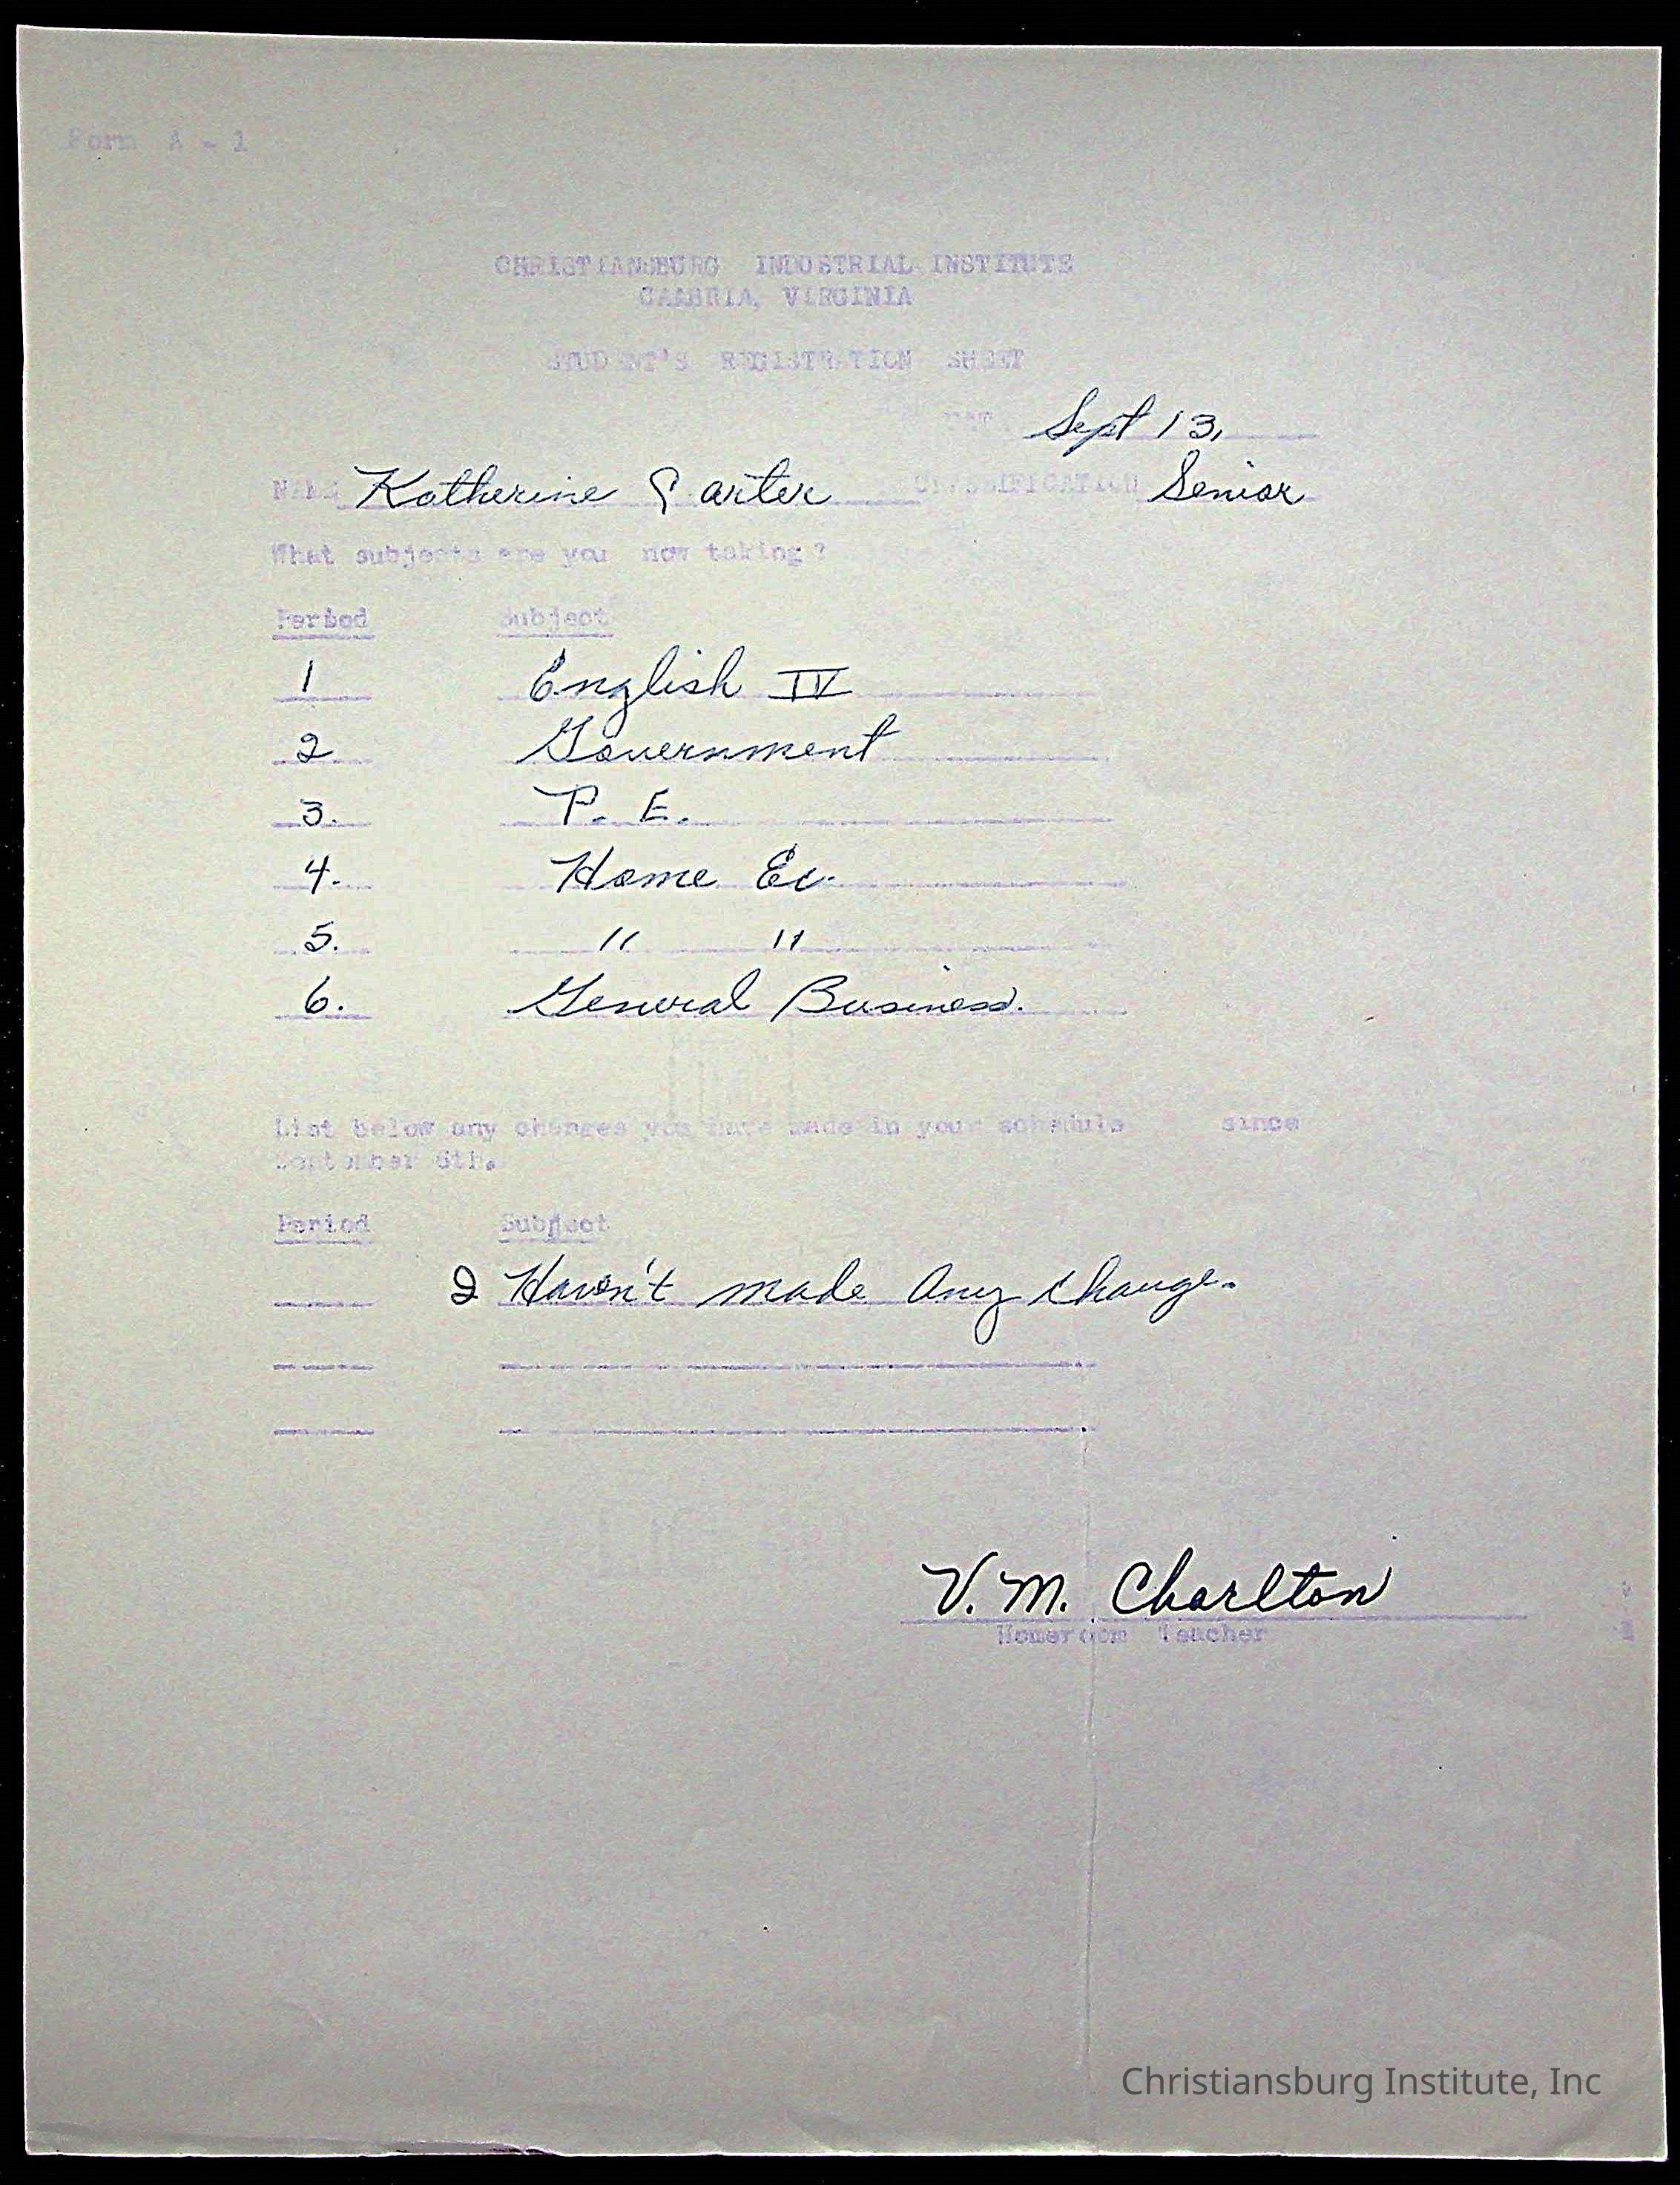 Form A - 1
CHRISTIANSBURG INDUSTRIAL INSTITUTE
CAMBRIA, VIRGINIA
STUDENT'S REGISTRATION SHEET
Sept 13,
NAME Katherine Carter CLASSIFICATION Senior
What subjects are you now taking?
Period Subject
1 English IV
2. Government
3. P. E.
4. Home Ec.
5. " "
6. General Business.
List below any changes you have made in your schedule since
September 6th.
Period Subject
I Haven't made Any Change.
V. M. Charlton
Homeroom Teacher
Christiansburg Institute, Inc